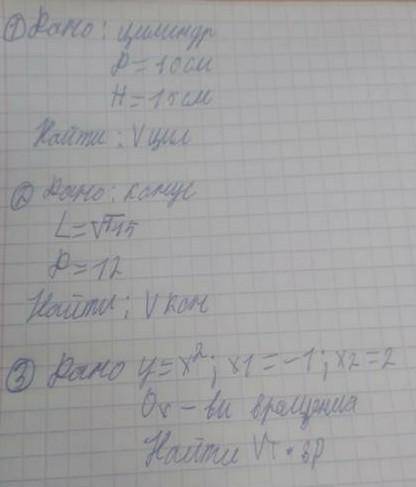 ① Дано: цилиндр
D=10см
H=15см
Найти: V цил
② Дано: конус
D=12
Найти: V кон
③ Дано y=x²; x1=-1; x2=2
Ox - вращения
Найти Vт.вр